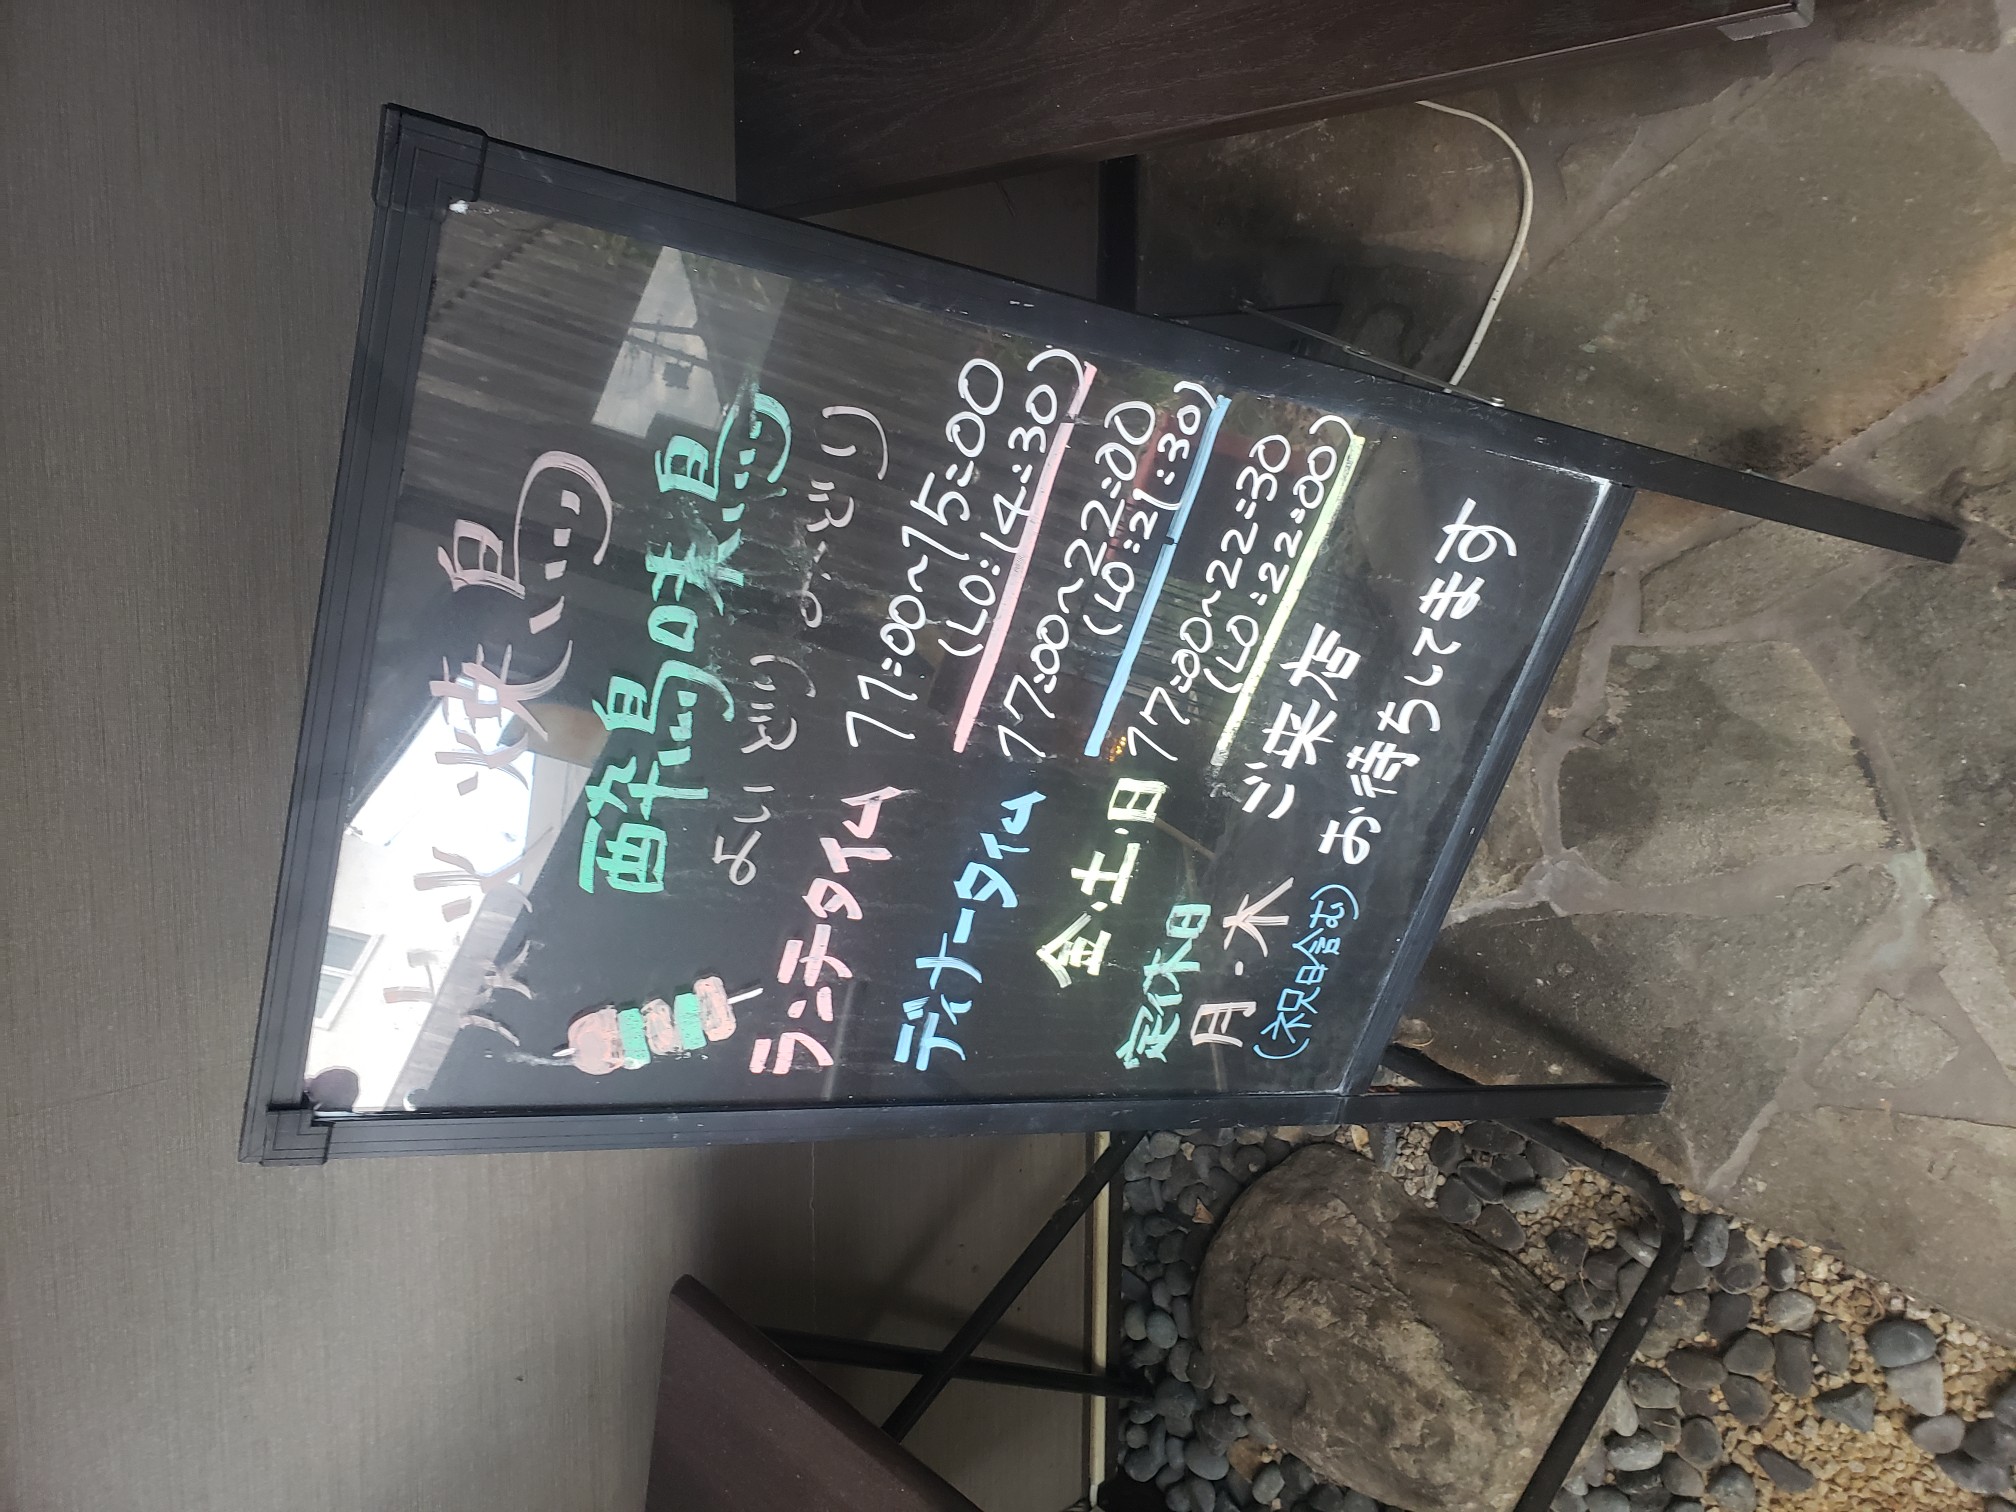 炭火焼鳥
酔鳥味鳥
よいどり みどり
ランチタイム 11:00~15:00
(LO:14:30)
ディナータイム 17:00~22:00
(LO:21:30)
金・土・日 17:00~22:30
(LO:22:00)
定休日
月・木
(祝日含む)
ご来店
お待ちしてます